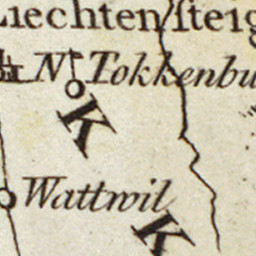 Liechtenſteig
N. Tokkenbu
K
Wattwil
K